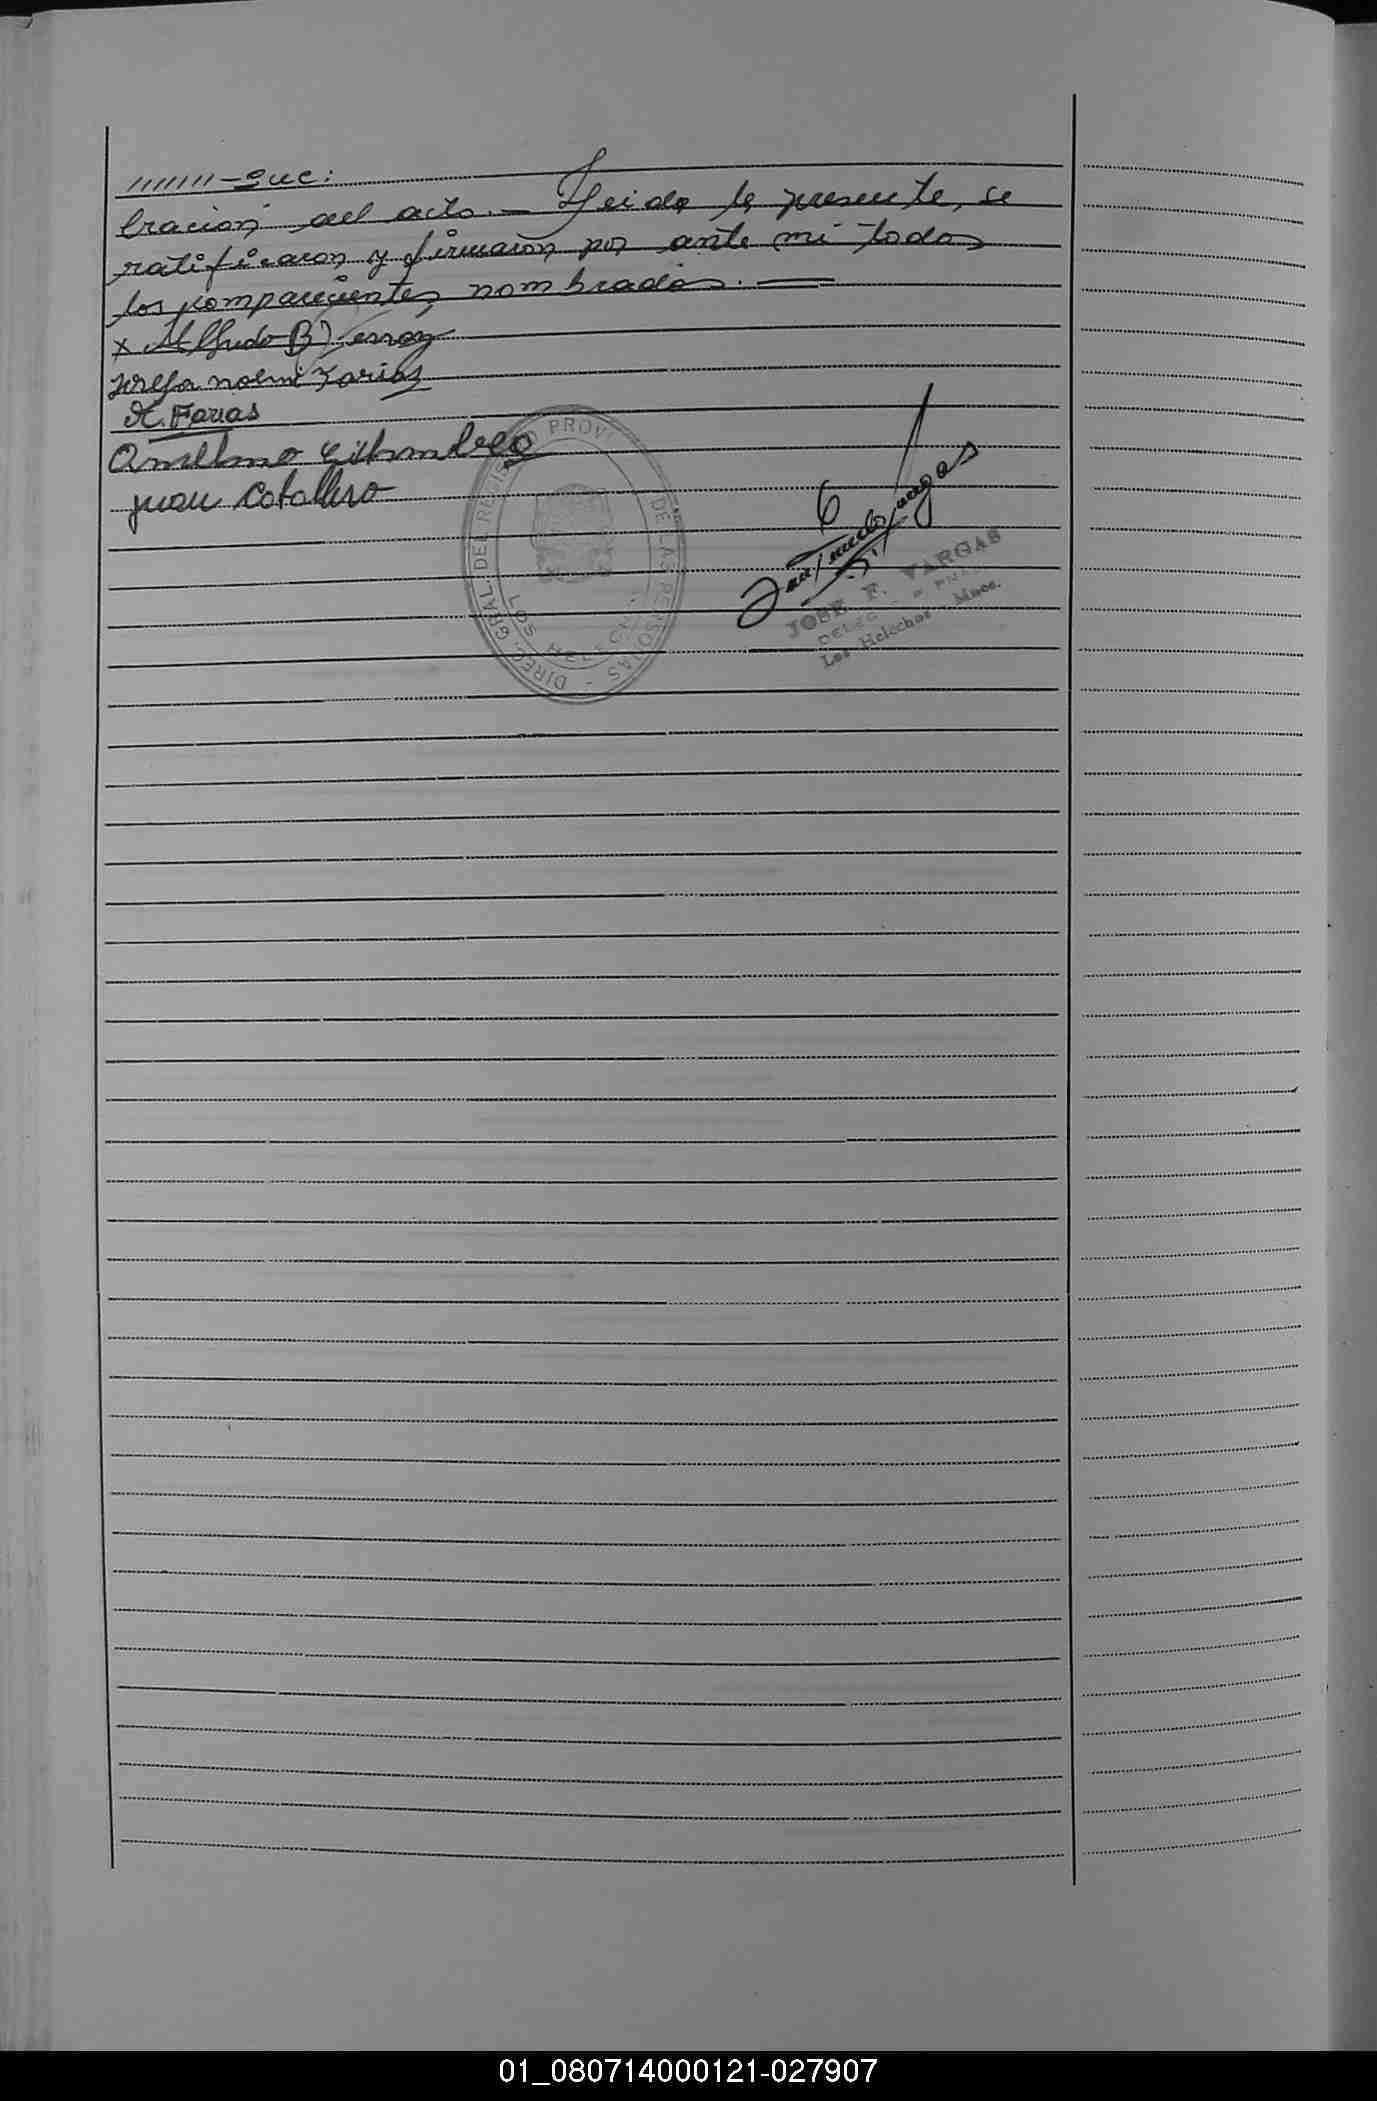 ///////-que:
bracion del acto.- Leida la presente, se
ratificaron y firmaron por ante mi todos
los comparecientes nombrados. —
x Alfredo B
noemi Farias
H. Farias
Anselmo
juan Caballero
DIREC. GRAL. DEL REGISTRO PROV. DE LAS PERSONAS -
LOS HELECHOS
vargas
JOSE F. VARGAS
Los Helechos - Mnes.
01_080714000121-027907